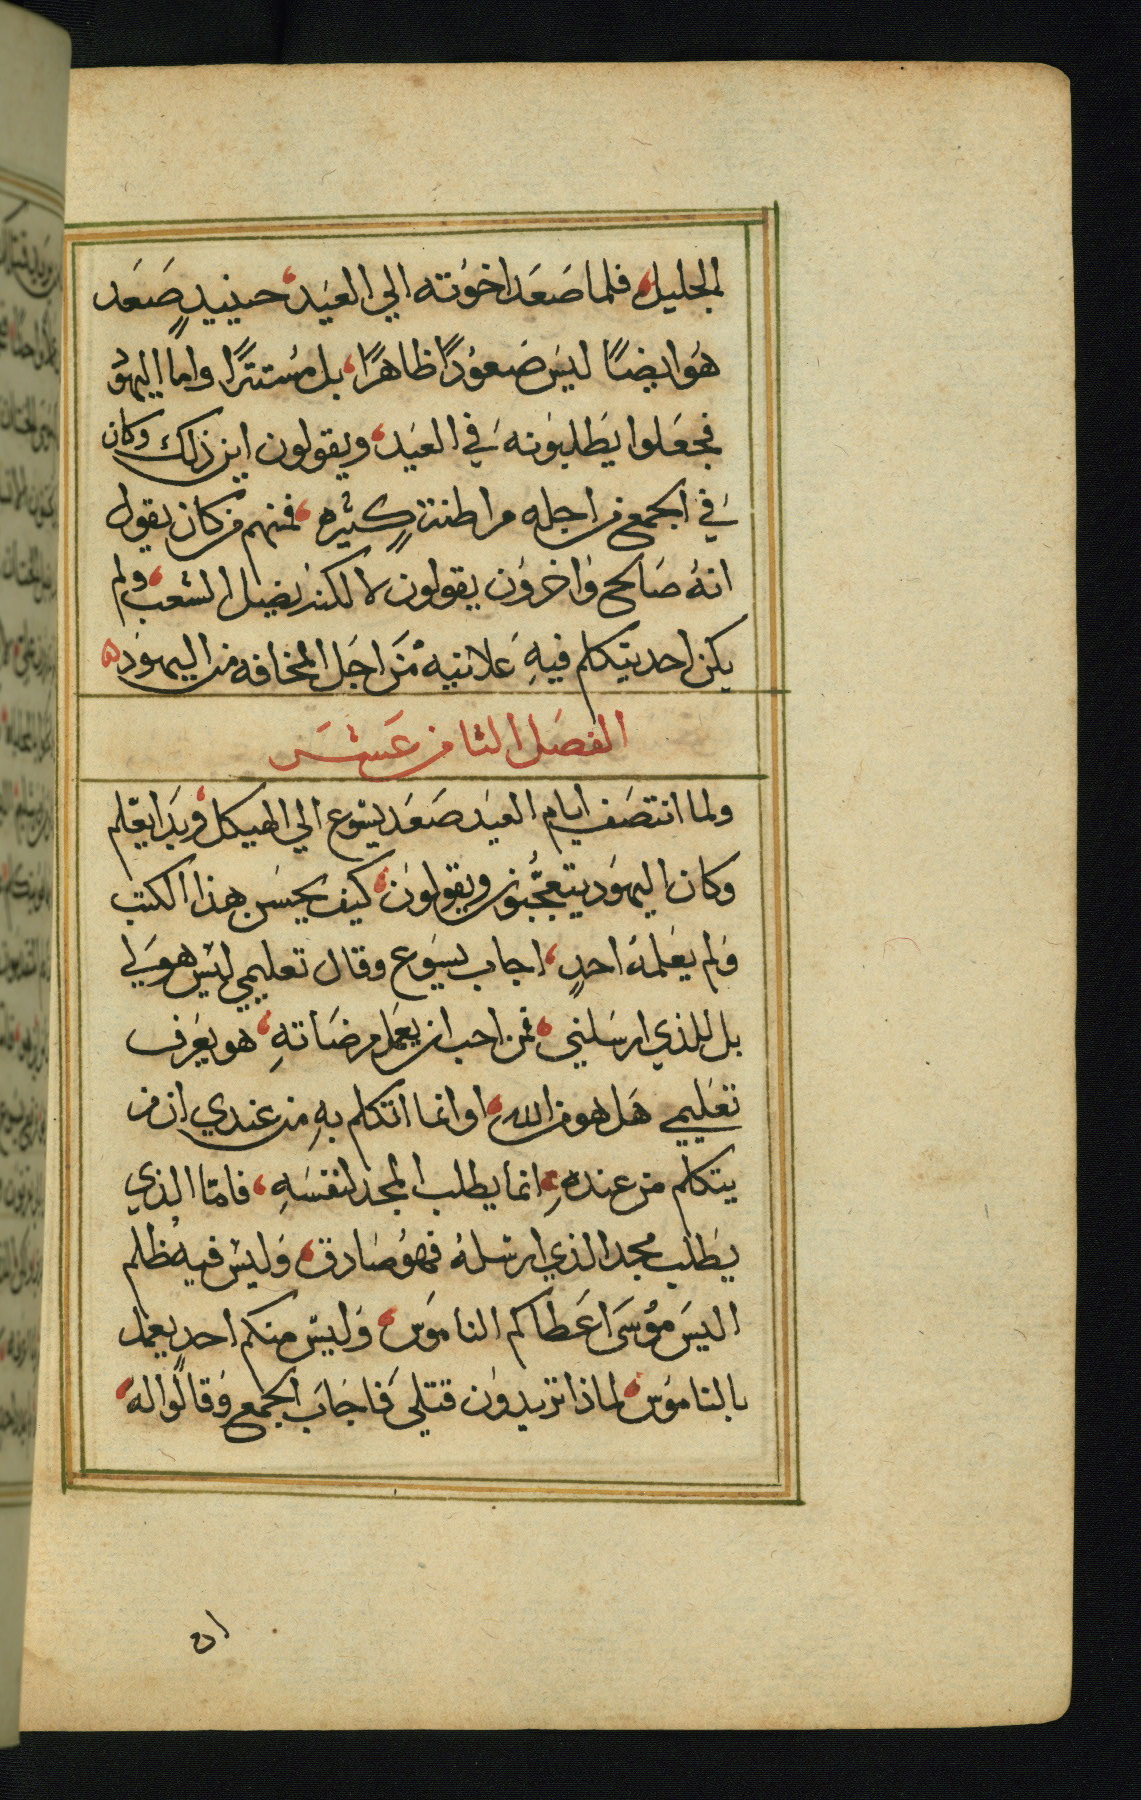 الجليل، فلما صَعَد اخوُته الي العَيد، حينيدٍ صَعَد
هُوَ ايضًا ليَس صَعوُدًا ظاهرًا، بل مُستترًا واما اليهوُ
فجعَلوا يَطلبوَنه في العَيد، ويقولون اين ذلك وكان
في الجمع من اجله مراطنةٍ كثيره، فمنهم من كان يقول
انهُ صَالح وَاخروُن يقولون لا لكنه يضل الشعب، ولم
يكن احد يتكلم فيهِ عَلانيه مَن اجَل المخافه من اليهوَد ه
الفصَل الثامن عَشَر
ولما انتصَف ايام العَيد صَعَد يسَوع الي الهيكل، وبَدا يعَلم
وكان اليهوَد يتعجُّبون ويقولوَن، كيف يحسَن هذا الكتب
وَلم يعَلمهُ احدٍ، اجاب يسَوع وقال تعليمي ليَس هوَ لي
بل للذي ارسَلني، فمن احب ان يعَمل مرضَاتهِ، هو يعَرف
تعَليمي هَل هو من الله، او انما اتكلم بهِ من عندي ان من
يتكلم من عندهِ، انما يطلب المجد لنفسَهِ، فامّا الذي
يطَلب مجد الذي ارسَلهُ فهوُ صَادق، وَليسَ فيه ظُلم
اليسَ موُسَى اعَطاكم الناموَس، وَليسَ منكم احد يعَمل
بالناموَس، لماذا تريدوَن قتلي فَاجَابَ الجمع وَقالوُا لهَ،
٥١